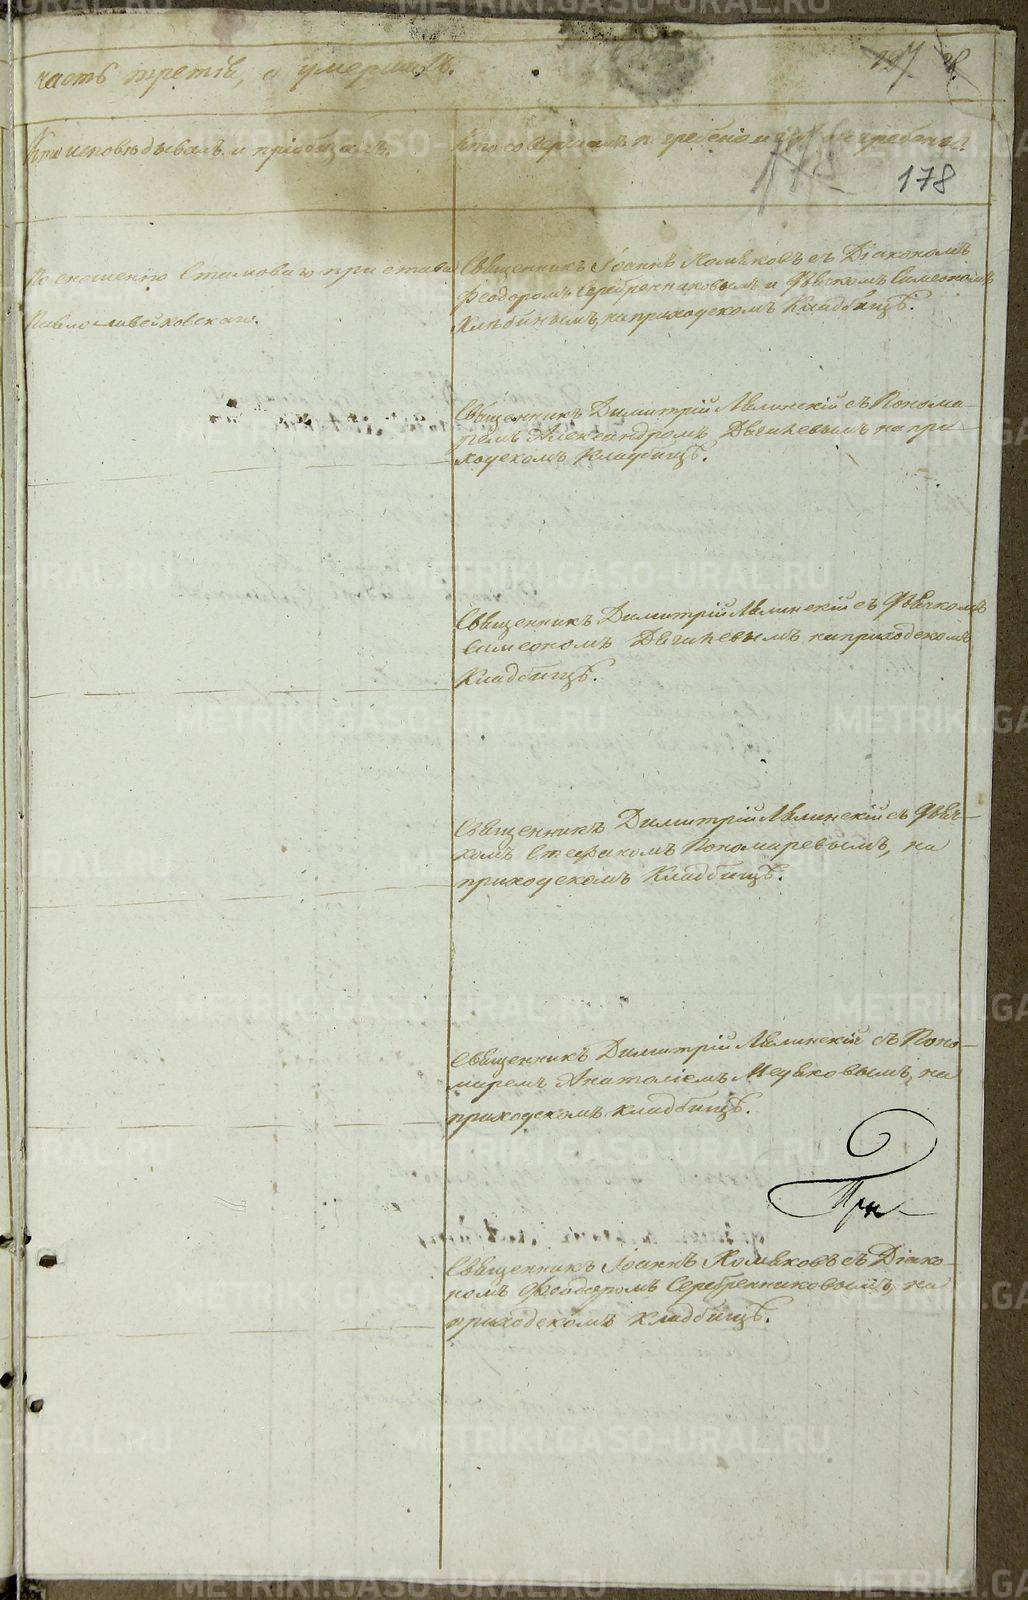 часть третія, о умершихъ.
Кто исповѣдывалъ и пріобщалъ.
Кто совершалъ погребеніе и гдѣ погребены
178
По сношенію Становаго пристава
Священникъ Іоаннъ Хомяковъ съ Діакономъ
Феодоромъ Серебренниковымъ и Дьячкомъ Симеономъ
на приходскомъ Кладбищѣ.
Священникъ Димитрій Ляпинскій съ Понома-
ремъ Александромъ на при-
ходскомъ Кладбищѣ.
Священникъ Димитрій Ляпинскій съ Дьячкомъ
Симеономъ на приходскомъ
Кладбищѣ.
Священникъ Димитрій Ляпинскій съ Дьяч-
комъ Стефаномъ Пономаревымъ, на
приходскомъ Кладбищѣ.
Священникъ Димитрій Ляпинскій съ Поно-
маремъ Анатоліемъ на
приходскомъ кладбищѣ.
Священникъ Іоаннъ Хомяковъ съ Діако-
номъ Феодоромъ Серебренниковымъ, на
приходскомъ кладбищѣ.
METRIKI.GASO-URAL.RU